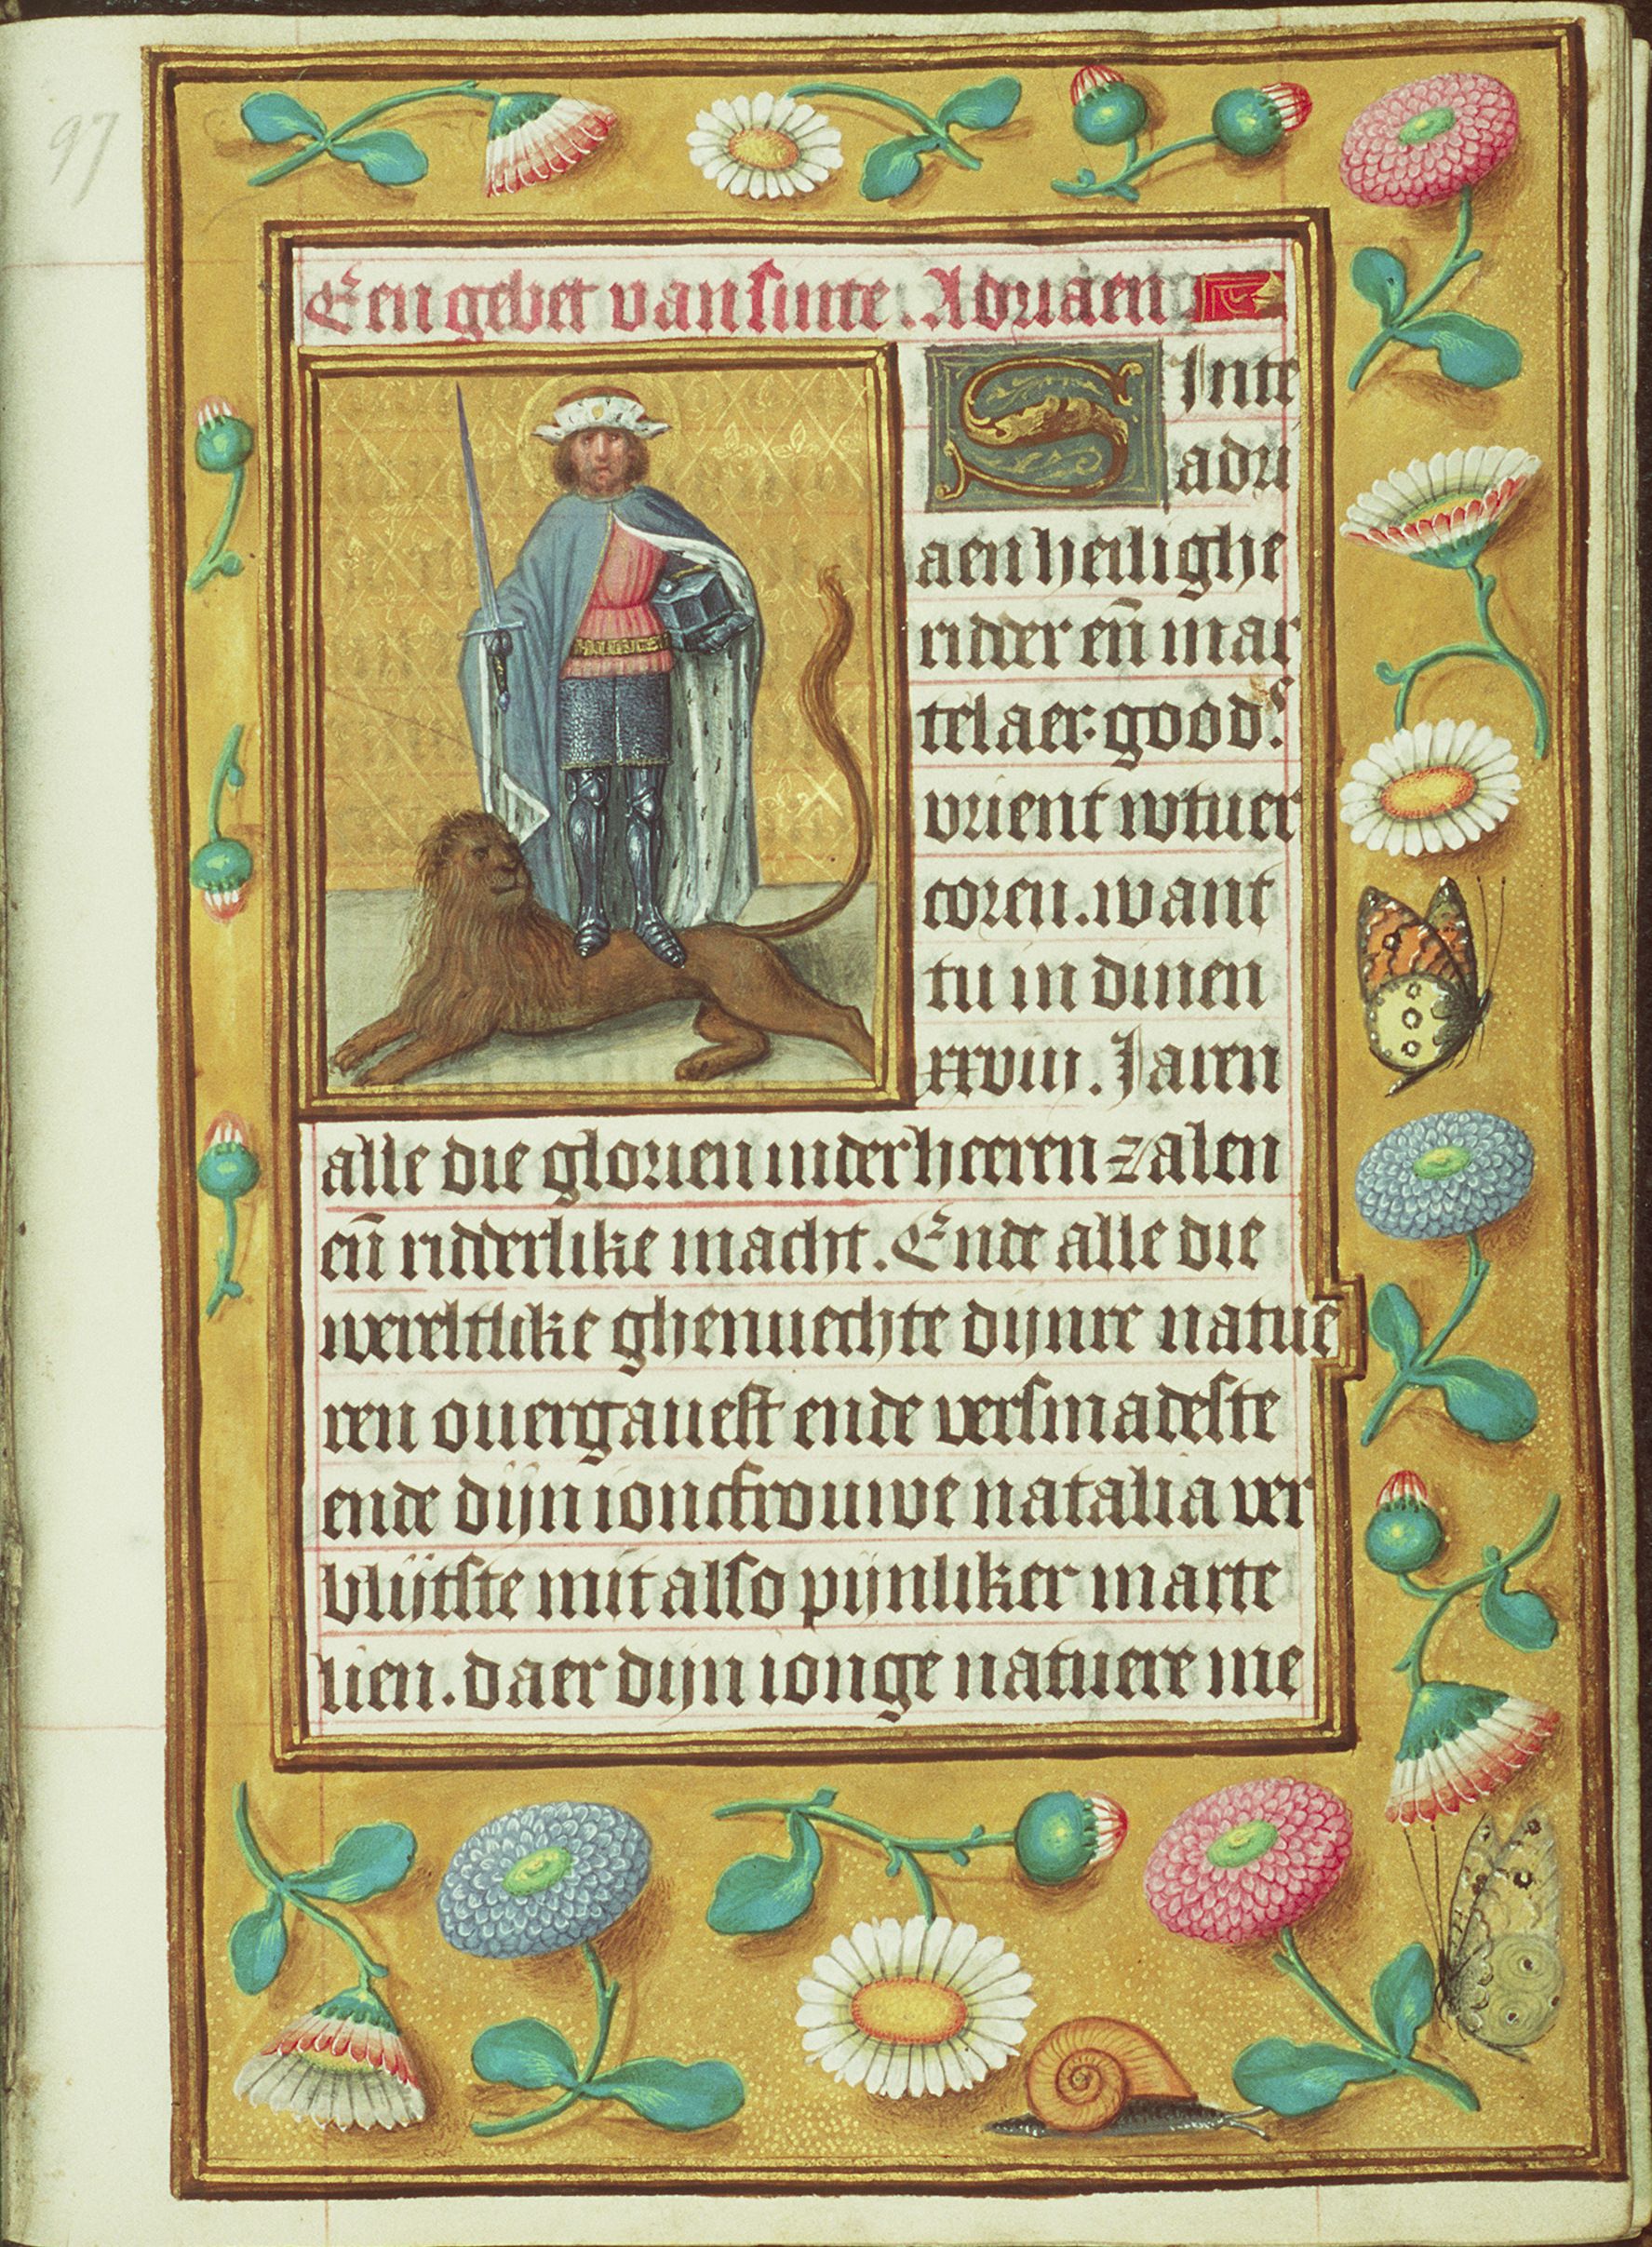 97
Een gebet van sinte. Adriaen
Sinte
adri
aen heilighe
ridder en̄ mar
telaer. goods
vrient wtuer
coren. want
tu in dinen
xxviii. Jaren
alle die glorien in der heeren zalen
en̄ ridderlike macht. Ende alle die
wereltlike ghenuechte dijnre natue
ren overgavest ende versmadeste
ende dijn ioncfrouwe natalia ver
blijtste mit also pijnliker marte
lien. daer dijn ionge natuere me